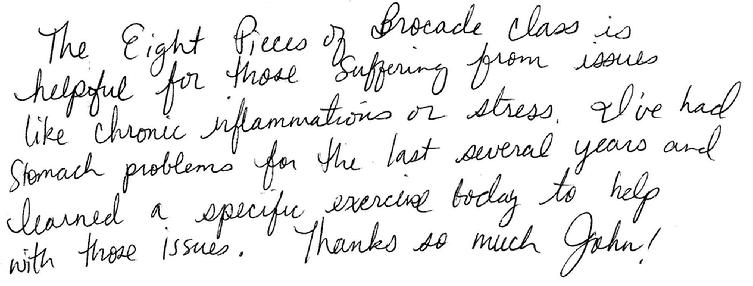 The Eight Pieces of Brocade class is
helpful for those Suffering from issues
like chronic inflammations or stress. I've had
Stomach problems for the last several years and
learned a specific exercise today to help
with those issues. Thanks so much John!